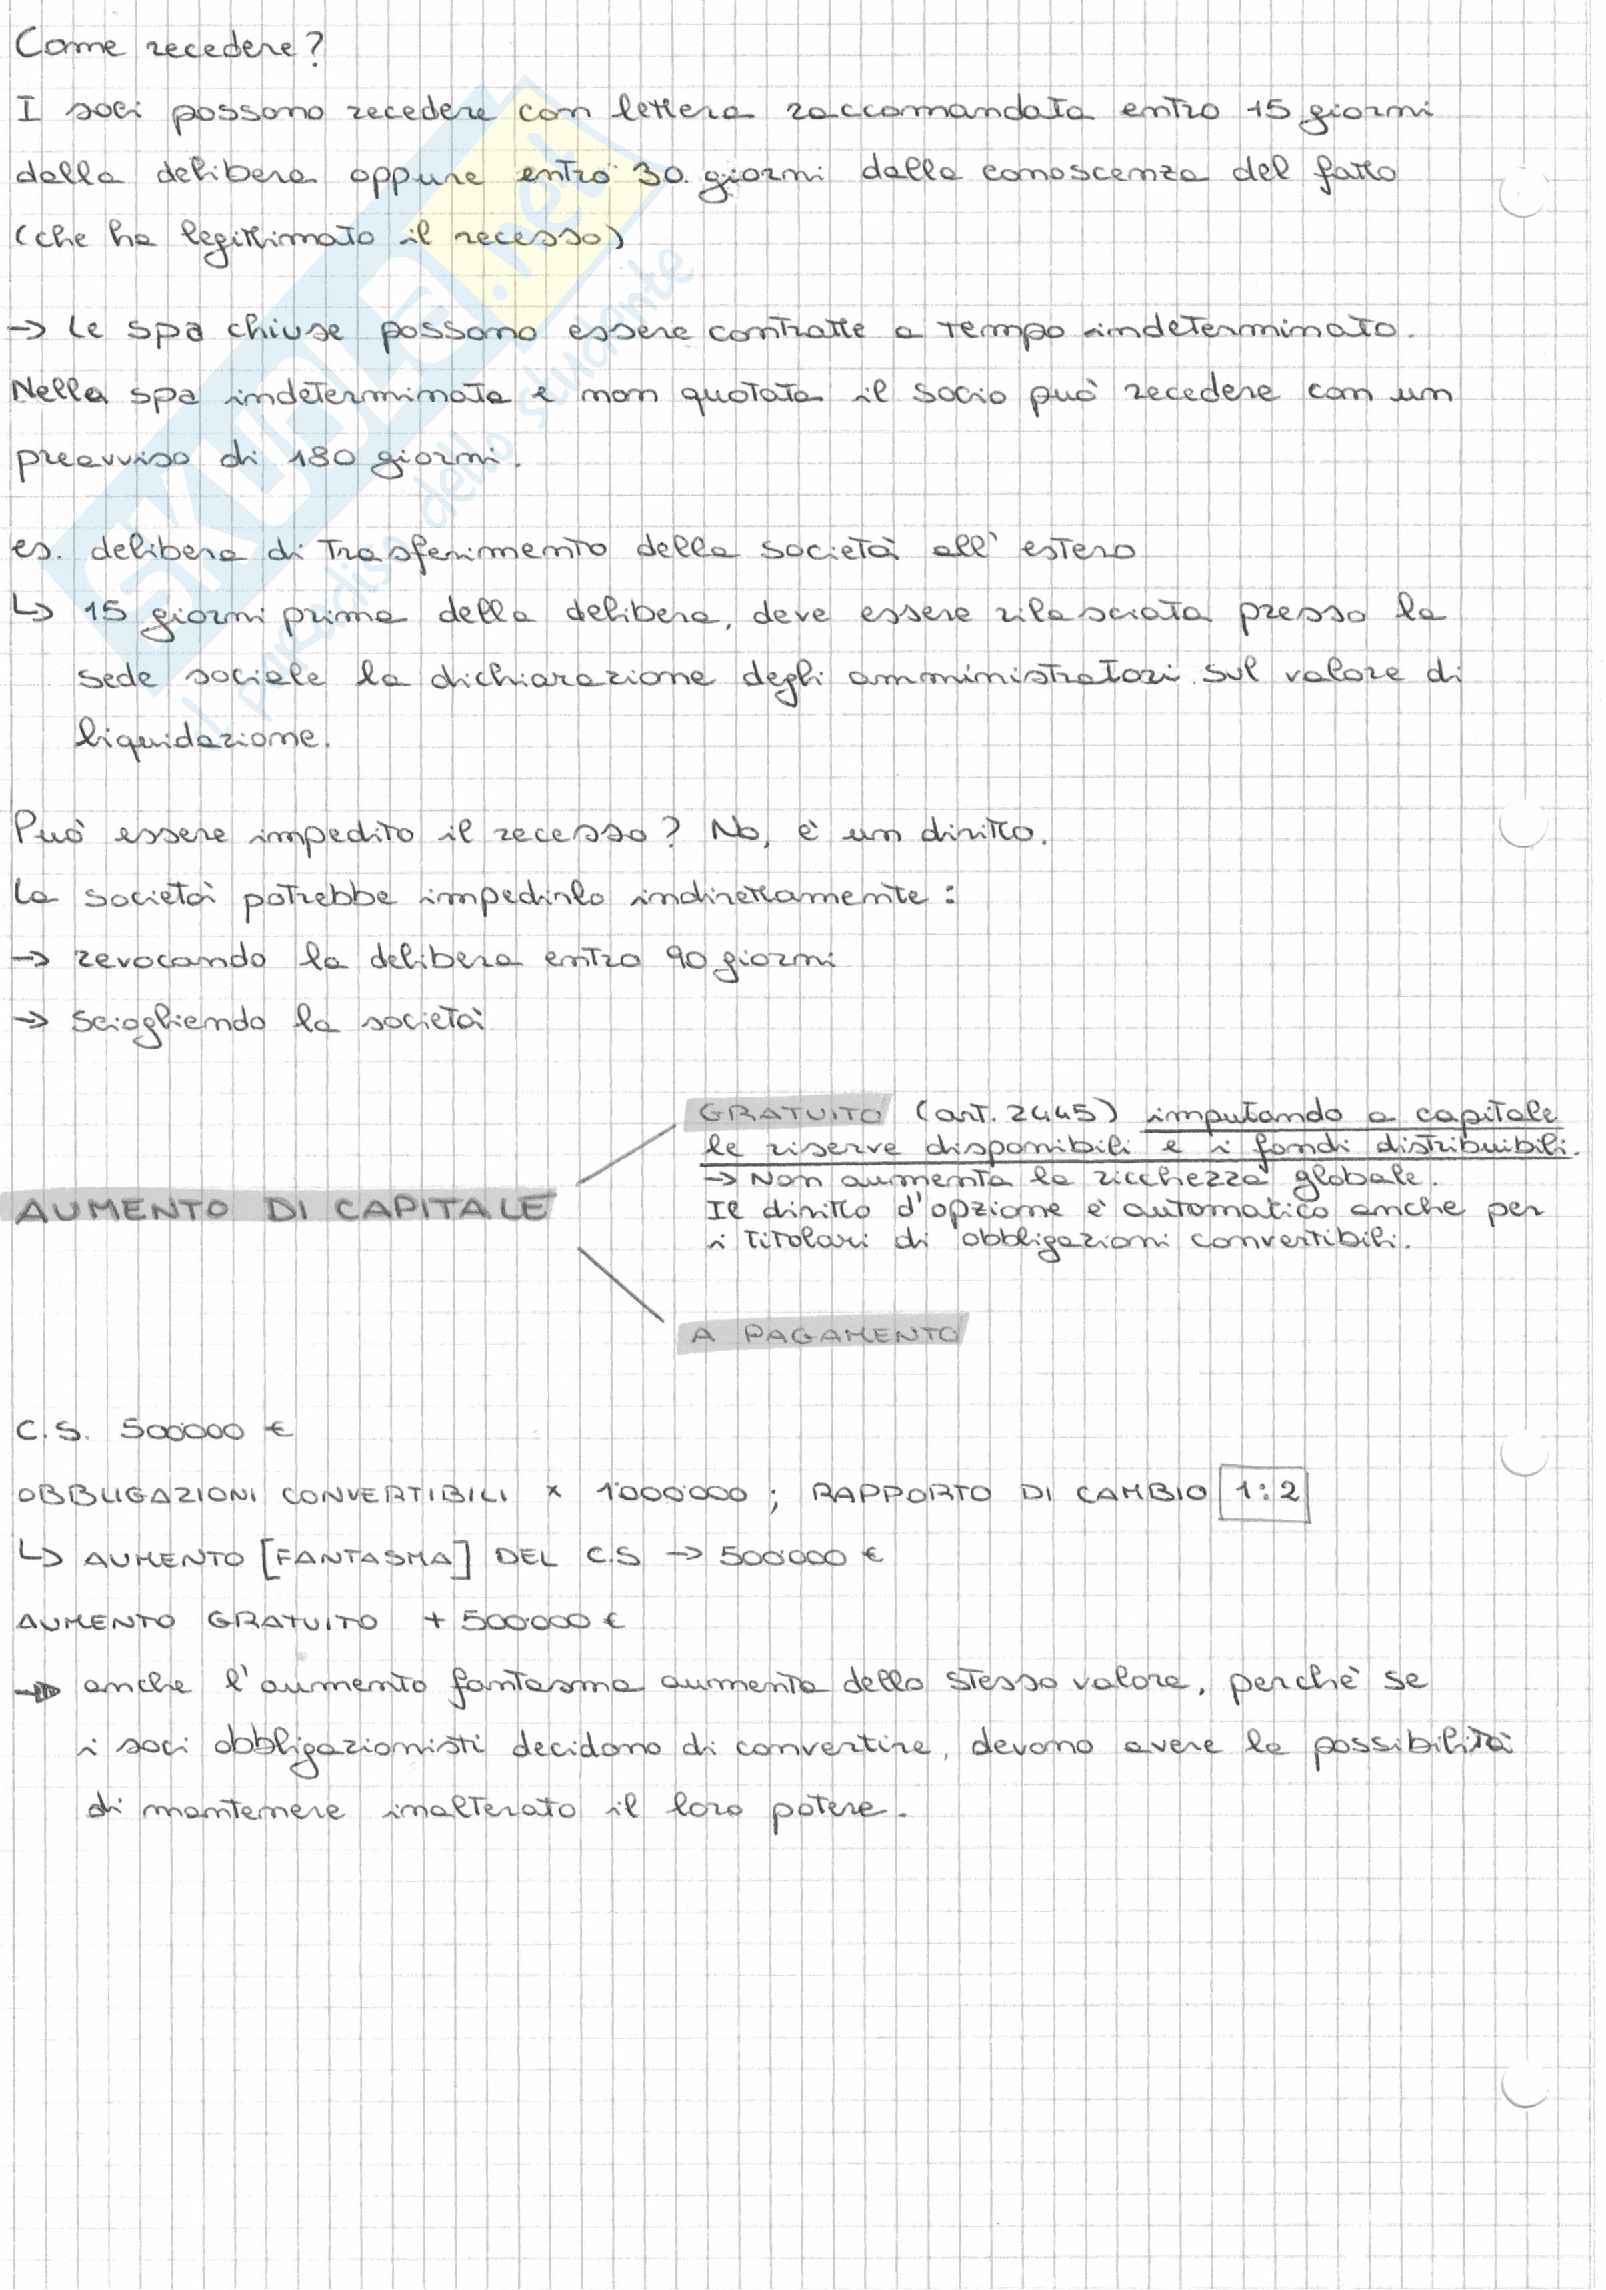 Come recedere?
I soci possono recedere con lettera raccomandata entro 15 giorni
dalla delibera oppure entro 30 giorni dalla conoscenza del fatto
(che ha legittimato il recesso)
→ Le spa chiuse possono essere contratte a tempo indeterminato.
Nella spa indeterminata e non quotata il socio può recedere con un
preavviso di 180 giorni.
es. delibera di trasferimento della società all'estero
↳ 15 giorni prima della delibera, deve essere rilasciata presso la
sede sociale la dichiarazione degli amministratori sul valore di
liquidazione.
Può essere impedito il recesso? No, è un diritto.
La società potrebbe impedirlo indirettamente:
→ revocando la delibera entro 90 giorni
→ sciogliendo la società
GRATUITO (art. 2445) imputando a capitale
le riserve disponibili e i fondi distribuibili.
→ Non aumenta la ricchezza globale.
AUMENTO DI CAPITALE
Il diritto d'opzione è automatico anche per
i titolari di obbligazioni convertibili.
A PAGAMENTO
C.S. 500'000 €
OBBLIGAZIONI CONVERTIBILI × 1'000'000 ; RAPPORTO DI CAMBIO 1:2
↳ AUMENTO [FANTASMA] DEL C.S → 500'000 €
AUMENTO GRATUITO + 500'000 €
→ anche l'aumento fantasma aumenta dello stesso valore, perchè se
i soci obbligazionisti decidono di convertire, devono avere la possibilità
di mantenere inalterato il loro potere.
SKUOLA.net
il paradiso dello studente